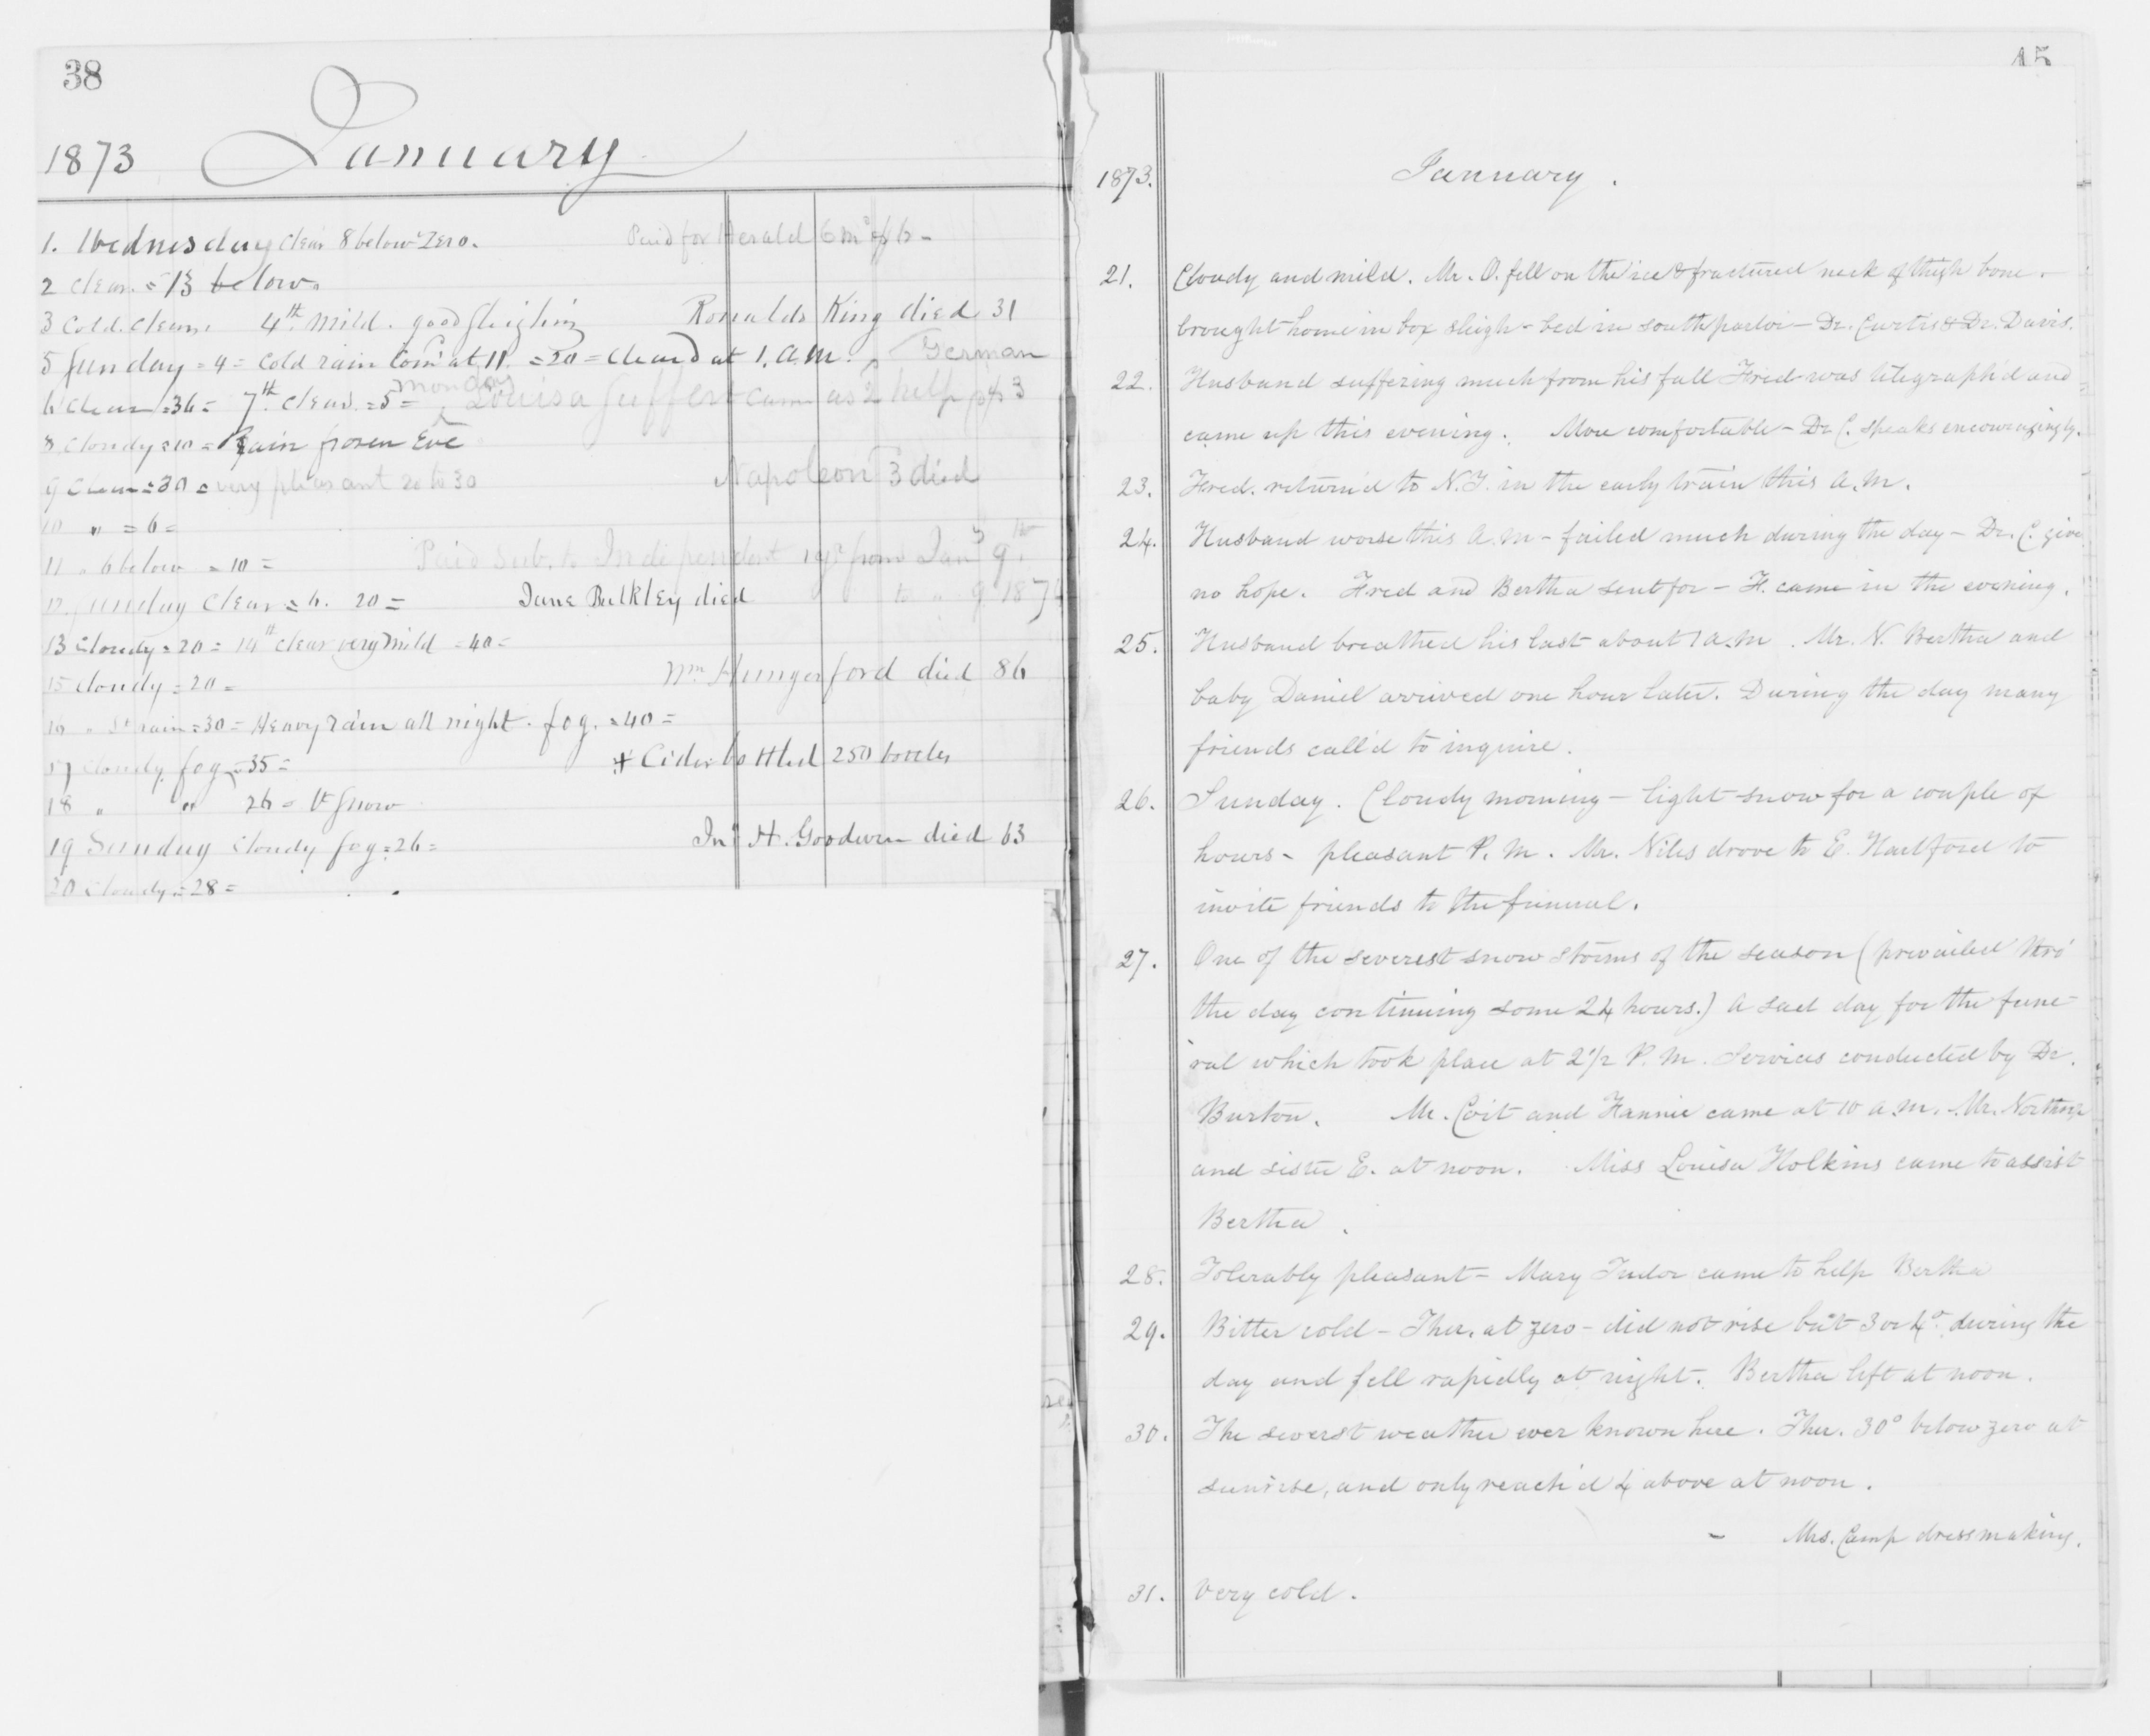 38
1873 January
1. Wednesday clear 8 below Zero. Paid for Herald 6 mo
2 clear = 13 below.
3 Cold. clear. 4th. Mild. good Sleighing Ronaldo King died 31
5 Sunday = 4 = Cold rain Com at 11. = 30 = Cleard at 1. A.M. German
monday
6 Clear = 36 = 7th. Clear. = 5 = Louisa Guffert came as help $3
8 Cloudy = 10 = Rain frozen Eve
9 Clear = 30 = very pleasant 20 to 30 Napoleon 3 died
10 " = 6 =
11 " 6 below = 10 = Paid Sub. to Independent 1 yr from Jany 9th
12. Sunday Clear = 6. 20 = Jane Bulkley died to " 9 1874
13 Cloudy = 20 = 14th clear very mild = 40 =
15 Cloudy = 20 = Wm Hungerford died 86
16 " rain = 30 = Heavy rain all night. fog. = 40 =
17 Cloudy fog = 35 = Cider bottled 250 bottles
18 " " 26 = lt Snow
19 Sunday Cloudy fog = 26 = Jno H. Goodwin died 63
20 Cloudy = 28 =
15
1873. January.
21. Cloudy and mild. Mr. O. fell on the ice & fractured neck of thigh bone.
brought home in box sleigh - bed in south parlor - Dr. Curtis & Dr. Davis.
22. Husband suffering much from his fall Fred was telegraph'd and
came up this evening. More comfortable - Dr C. speaks encouragingly.
23. Fred. return'd to N.Y. in the early train this A.M.
24. Husband worse this A.M - failed much during the day - Dr. C. give
no hope. Fred and Bertha sent for - F. came in the evening.
25. Husband breathed his last about 1 A.M. Mr. N. Bertha and
baby Daniel arrived one hour later. During the day many
friends call'd to inquire.
26. Sunday. Cloudy morning - light snow for a couple of
hours - pleasant P.M. Mr. Niles drove to E. Hartford to
invite friends to the funeral.
27. One of the severest snow storms of the season (prevailed thro'
the day continuing some 24 hours.) A sad day for the fune-
ral which took place at 2 1/2 P.M. Services conducted by Dr.
Burton. Mr. Coit and Fannie came at 10 a.m. Mr. Northrop
and sister E. at noon. Miss Louisa Holkins came to assist
Bertha.
28. Tolerably pleasant - Mary Tudor came to help Bertha
29. Bitter cold - Ther. at zero - did not rise but 3 or 4° during the
day and fell rapidly at night. Bertha left at noon.
30. The severest weather ever known here. Ther. 30° below zero at
sunrise, and only reach'd 4 above at noon.
- Mrs. Camp dressmaking.
31. Very cold.